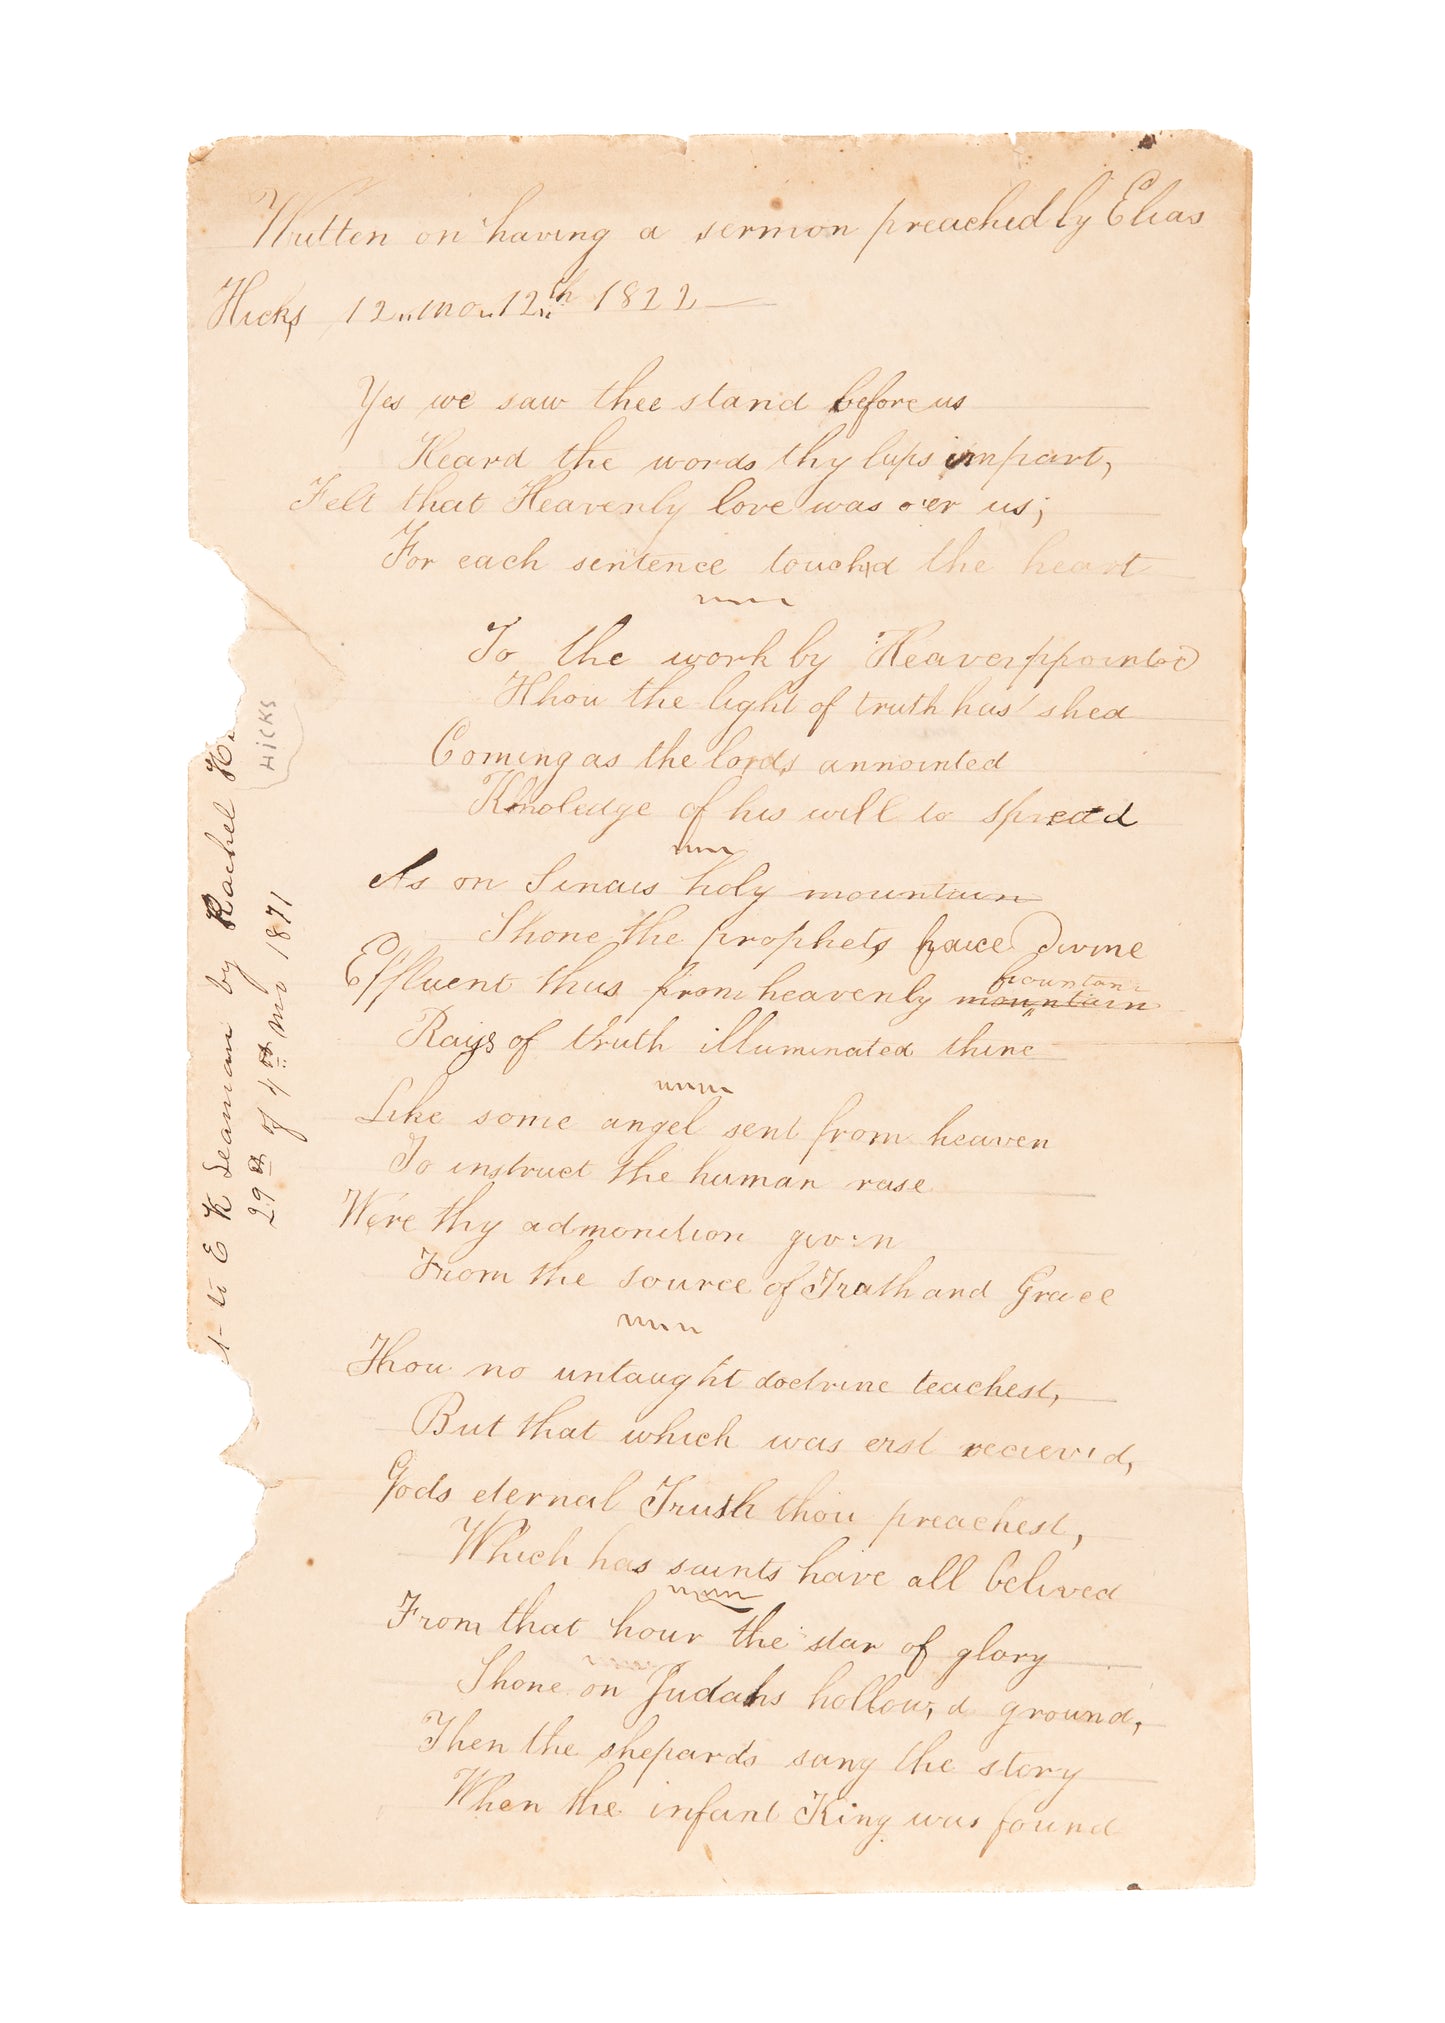 Written on having a sermon preached by Elias
Hicks 12 mo 12th 1822
Yes we saw thee stand before us
Heard the words thy lips impart,
Felt that Heavenly love was o'er us;
For each sentence touchd the heart
To the work by Heaven ppointed
Thou the light of truth has shed
Coming as the lords annointed
Knoledge of his will to spread
As on Sinais holy mountain
Shone the prophets face divine
fountain
Effluent thus from heavenly mountain
Rays of truth illuminated thine
Like some angel sent from heaven
To instruct the human rase
Were thy admonition given
From the source of Truth and Grace
Thou no untaught doctrine teachest,
But that which was erst recieved,
Gods eternal Truth thou preachest,
Which has saints have all belived
From that hour the star of glory
Shone on Judahs hollow,d ground,
Then the shepards sang the story
When the infant King was found
to E K Seaman by Rachel Hi
HICKS
29th of 4th mo 1871